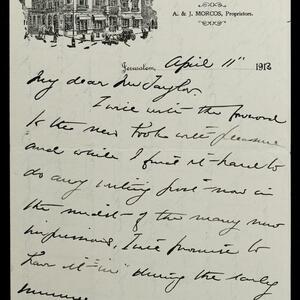 A. & J. MORCOS, Proprietors.
Jerusalem, April 11" 1913
My dear Mr Taylor
I will write the foreword
to the new book with pleasure
and while I find it hard to
do any writing just now in
the midst of the many new
impressions, I will promise to
have it "in" during the early
summer